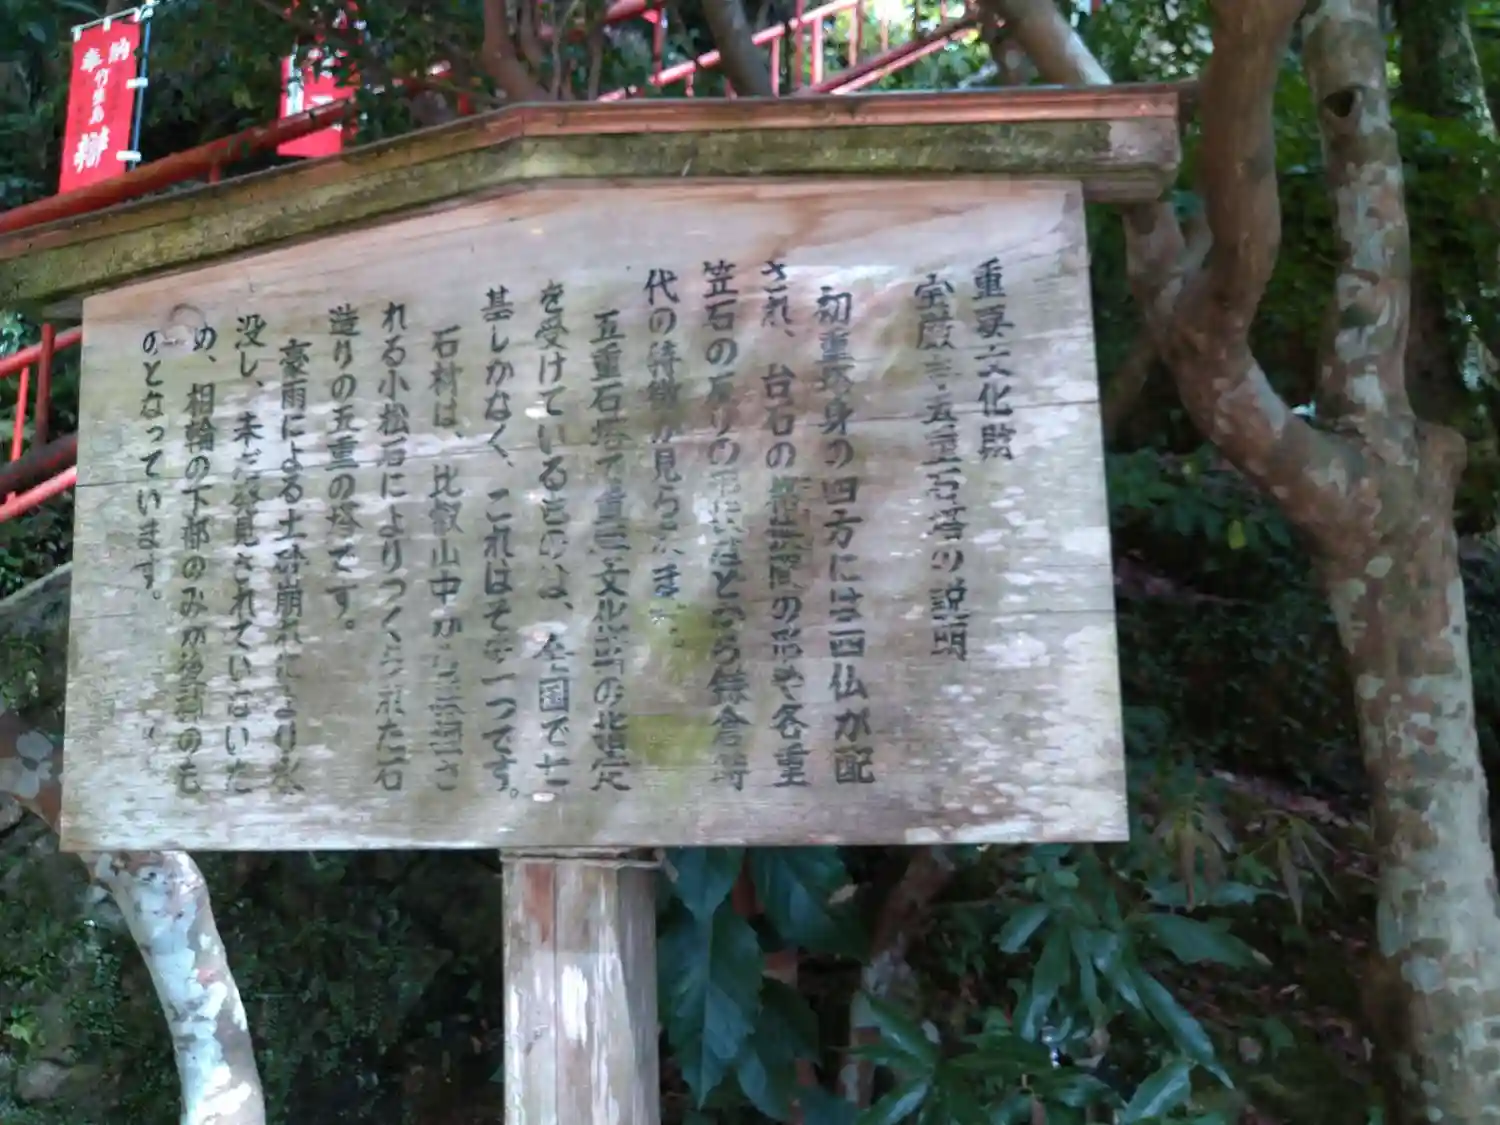 重要文化財
宝厳寺五重石塔の説明
初重塔身の四方には四仏が配
され、台石の格狭間の形や各重
笠石の反りの形状などから鎌倉時
代の特徴が見られます。
五重石塔で重要文化財の指定
を受けているものは、全国で七
基しかなく、これはその一つです。
石材は、比叡山中から産出さ
れる小松石によりつくられた石
造りの五重の塔です。
豪雨による土砂崩れにより水
没し、未だ発見されていないた
め、相輪の下部のみが後補のも
のとなっています。
奉納
竹生島